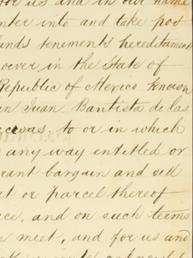 for us and in our name
enter into and take pos
lands tenements hereditament
soever in the State of
Republic of Mexico known
San Juan Bautista de las
to or in which
any way entitled or
grant bargain and sell
or parcel thereof
and on such terms
meet, and for us and